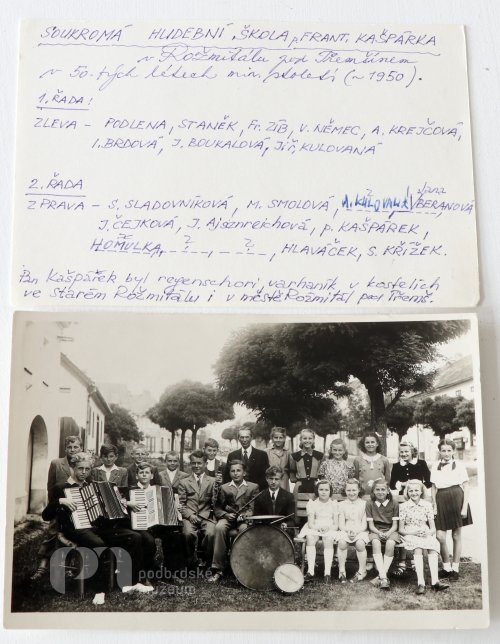 SOUKROMÁ HUDEBNÍ ŠKOLA p. FRANT. KAŠPÁRKA
v Rožmitálu pod Třemšínem
v 50. tých létech min. století (~ 1950).
1. ŘADA:
ZLEVA - PODLENA, STANĚK, Fr. ZÍB, V. NĚMEC, A. KREJČOVÁ,
I. BRDOVÁ, J. BOUKALOVÁ, Jiř. KULOVANÁ
2. ŘADA
ZPRAVA - S. SLADOVNÍKOVÁ, M. SMOLOVÁ, ? Jana BERANOVÁ
J. ČEJKOVÁ, J. Ajsznreichová, p. KAŠPÁREK,
HOMULKA, ?, ?, HLAVÁČEK, S. KŘÍŽEK.
Pan Kašpárek byl regenschori varhaník v kostelích
ve starém Rožmitálu i v městě Rožmitál pod Třemš.
podbrdské
muzeum